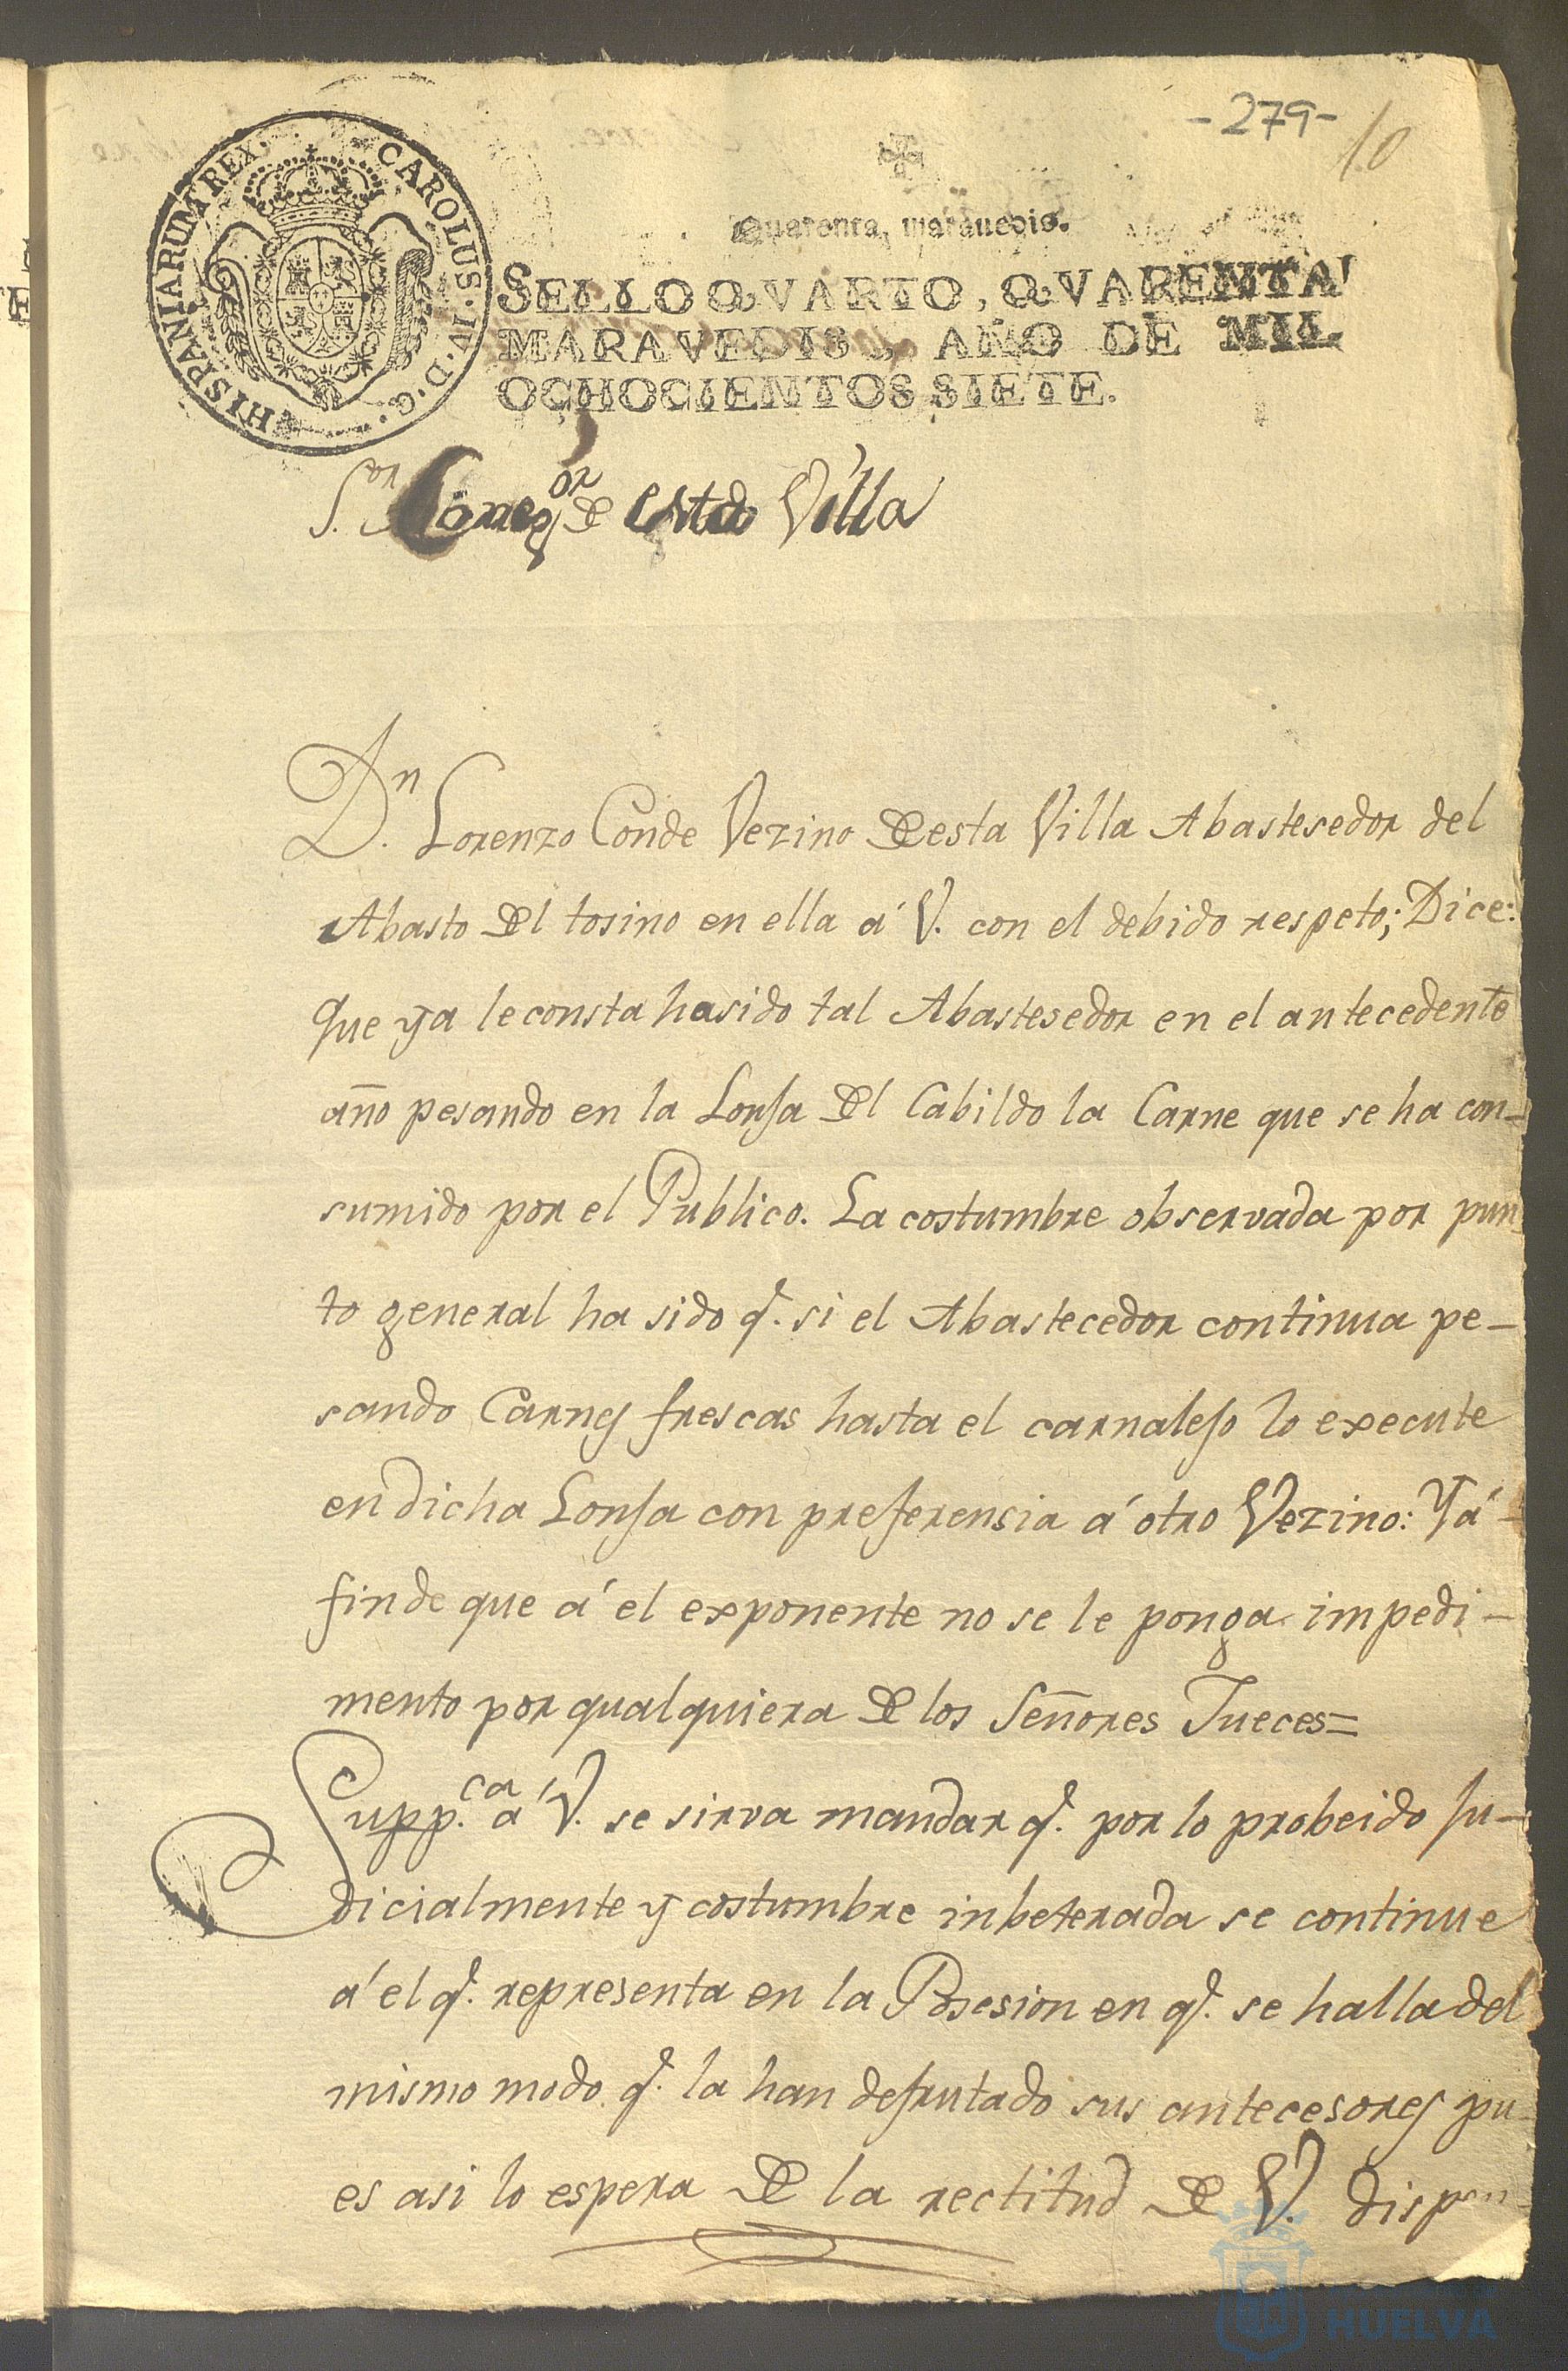 -279-
10
CAROLUS·IV·D·G· HISPANIARUM REX.
Quarenta, marauedis.
SELLO QVARTO, QVARENTA
MARAVEDIS, AÑO DE MIL
OCHOCIENTOS SIETE.
S.or Correg.or de esta Villa
D.n Lorenzo Conde Vezino de esta Villa Abastesedor del
Abasto del tosino en ella á V. con el debido respeto; Dice:
Que ya le consta ha sido tal Abastesedor en el antecedente
año pesando en la Lonja del Cabildo la Carne que se ha con-
sumido por el Publico. La costumbre observada por pun
to general ha sido q.e si el Abastecedor continua pe-
sando Carnes frescas hasta el carnalejo lo execute
en dicha Lonja con preferensia á otro Vezino: Y á
fin de que á el exponente no se le ponga impedi-
mento por qualquiera de los Señores Jueces=
Supp.ca á V. se sirva mandar q.e por lo probeido ju-
dicialmente y costumbre inbeterada se continue
á el q.e representa en la Posesion en q.e se halla del
mismo modo q.e la han desfrutado sus antecesores pu-
es asi lo espera de la rectitud de V. dispen-
HUELVA